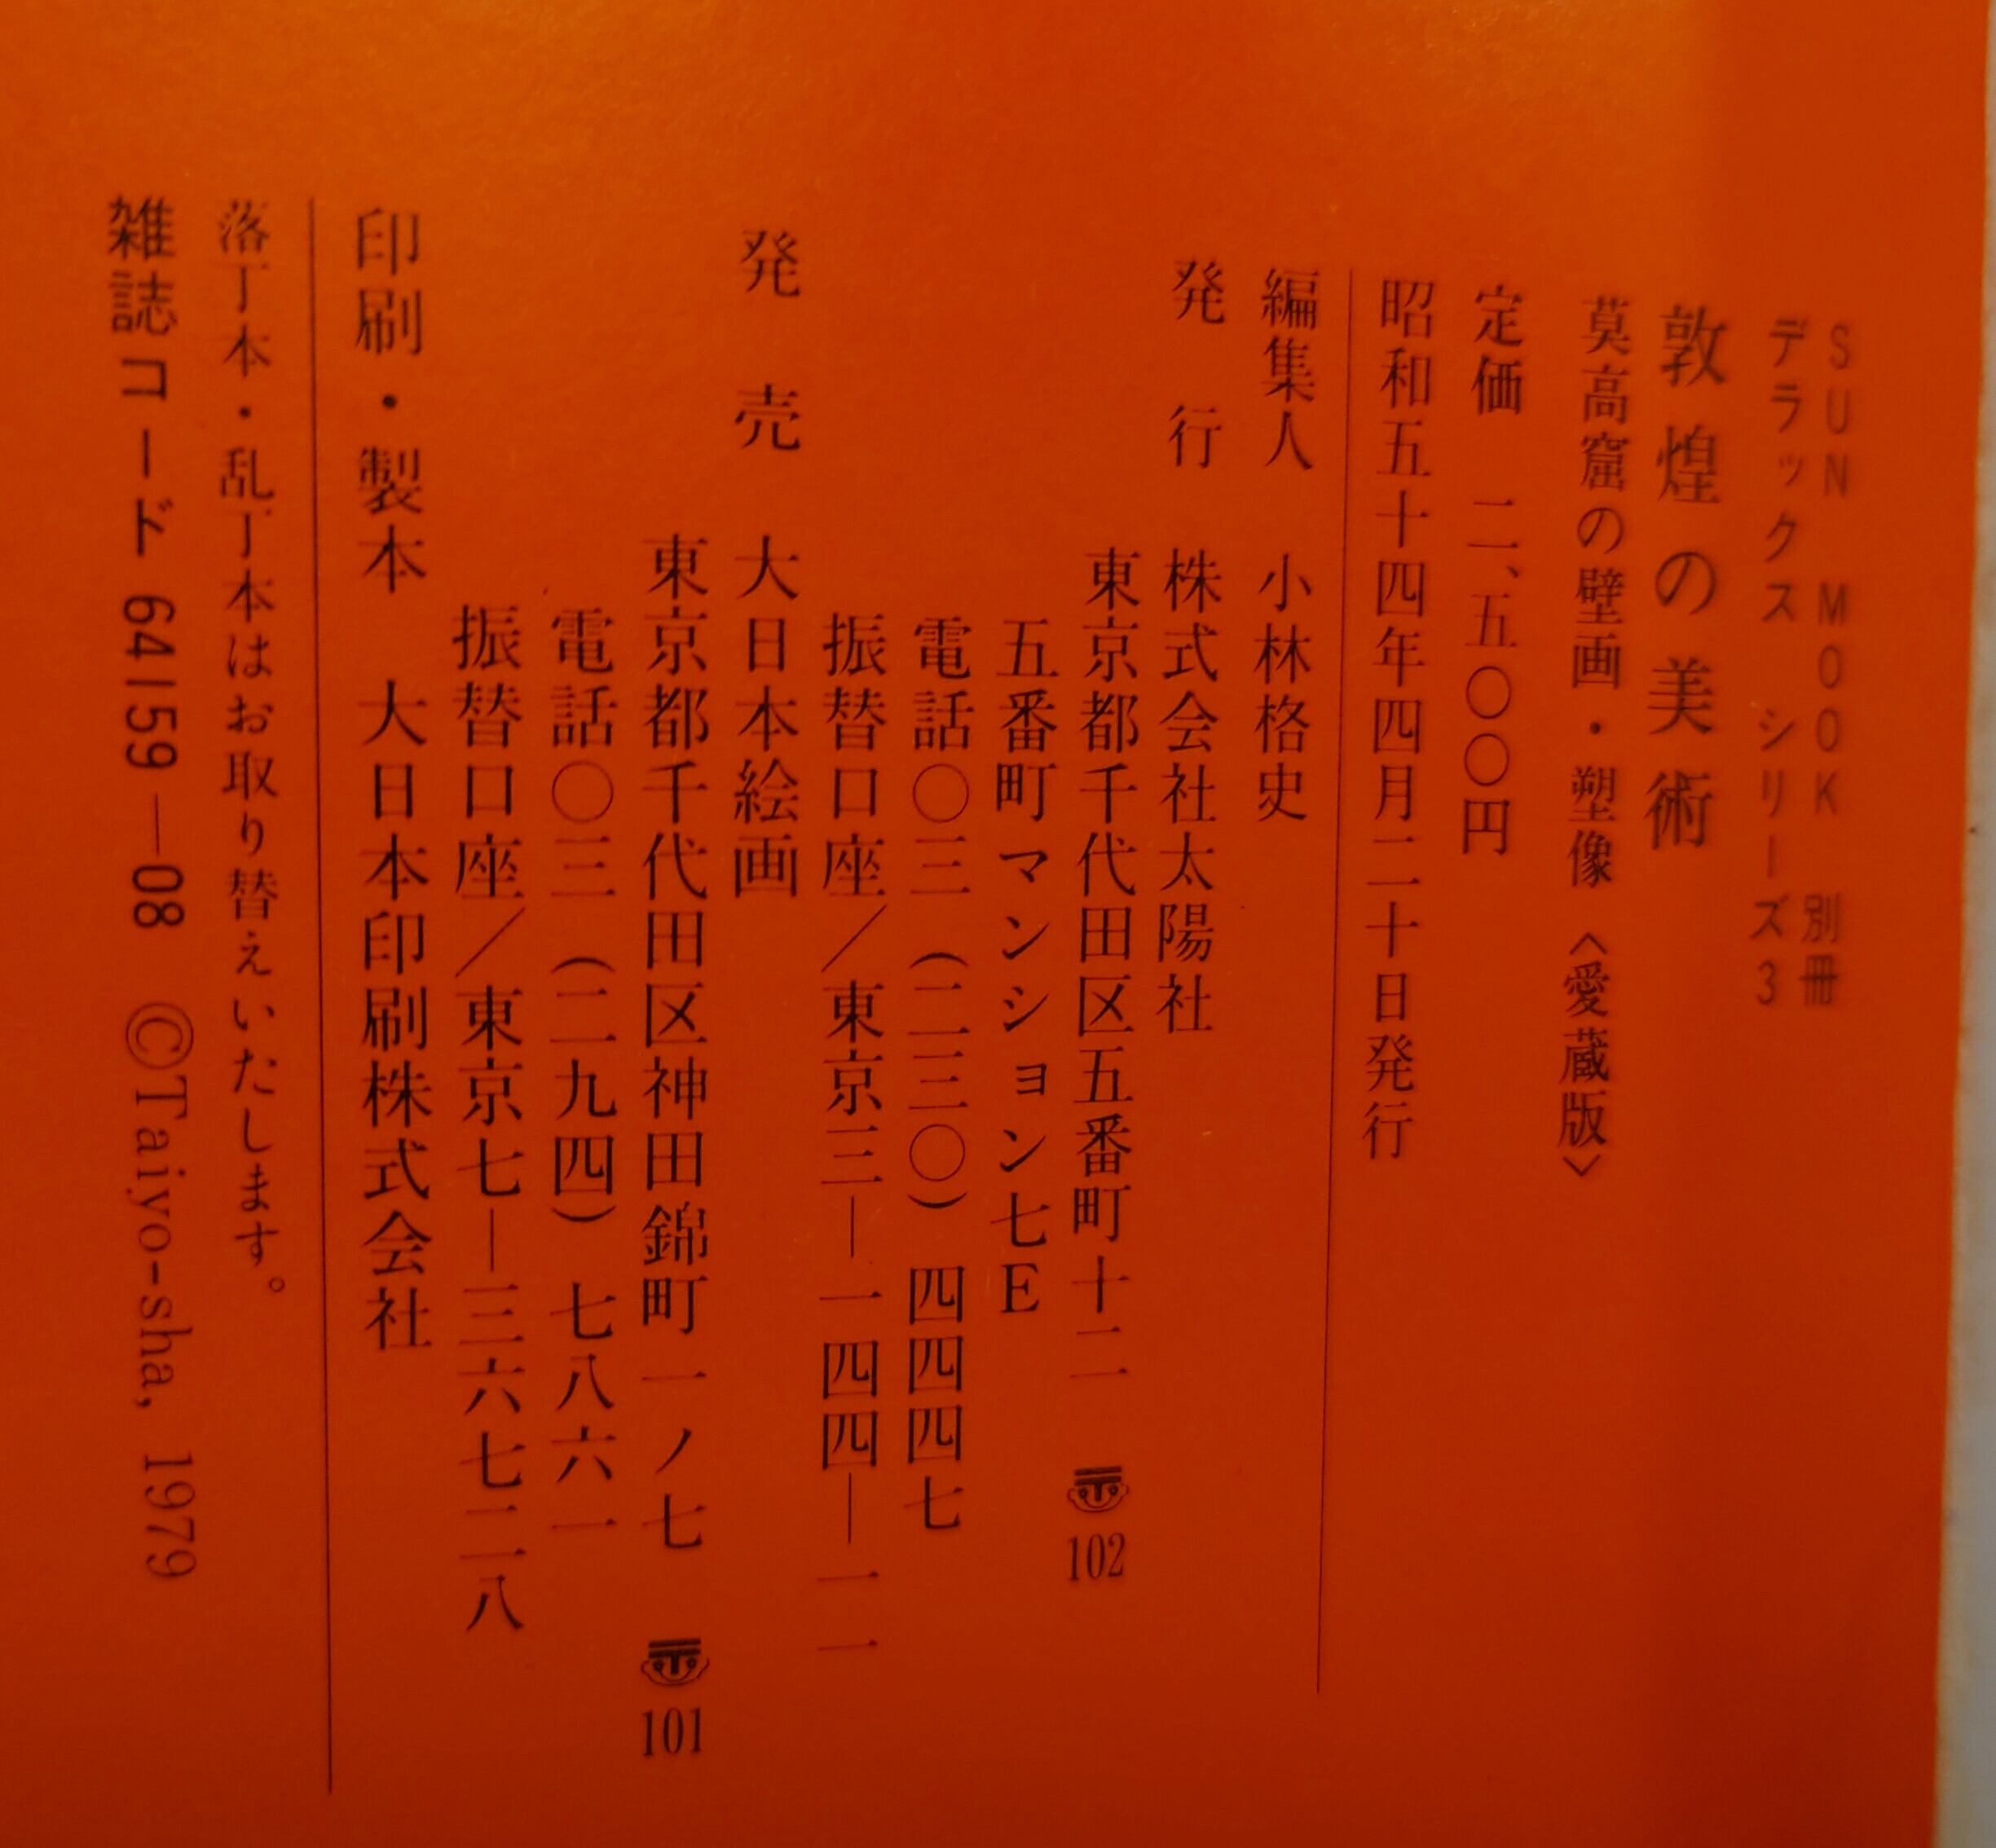 SUN MOOK 別冊
デラックス シリーズ3
敦煌の美術
莫高窟の壁画・塑像〈愛蔵版〉
定価 二、五〇〇円
昭和五十四年四月二十日発行
編集人 小林格史
発行 株式会社太陽社
東京都千代田区五番町十二 〒102
五番町マンション七E
電話〇三(二三〇)四四四七
振替口座/東京三―一四四―一一
発売 大日本絵画
東京都千代田区神田錦町一ノ七 〒101
電話〇三(二九四)七八六一
振替口座/東京七―三六七二八
印刷・製本 大日本印刷株式会社
落丁本・乱丁本はお取り替えいたします。
雑誌コード 64159―08 ©Taiyo-sha, 1979